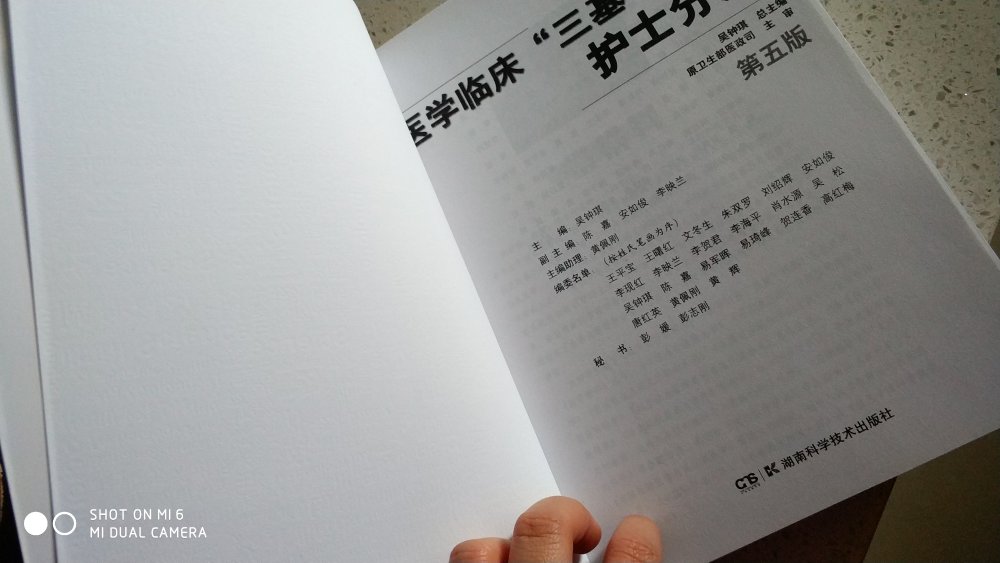 医学临床“三基
护士分
吴钟琪 总主编
原卫生部医政司 主 审
第五版
主 编 吴钟琪
副 主 编 陈 嘉 安如俊 李映兰
主编助理 黄佩刚
编委名单 （按姓氏笔画为序）
王平宝 王曙红 文冬生 朱双罗 刘绍辉 安如俊
李现红 李映兰 李贺君 李海平 肖水源 吴 松
吴钟琪 陈 嘉 易军晖 易琦峰 贺连香 高红梅
唐红英 黄佩刚 黄 辉
秘 书 彭 媛 彭志刚
湖南科学技术出版社
SHOT ON MI 6
MI DUAL CAMERA